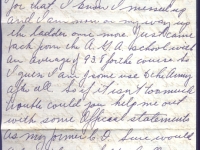 for that, I know I messed up
and I am now on my way up
the ladder once more Just came
back from the A.G.A school with
an average of 93.8 for the course. So
I guess I am of some use to the Army
after all. So if it isn't too much
trouble could you help me out
with some Official statements
as my former C.O. I sure would